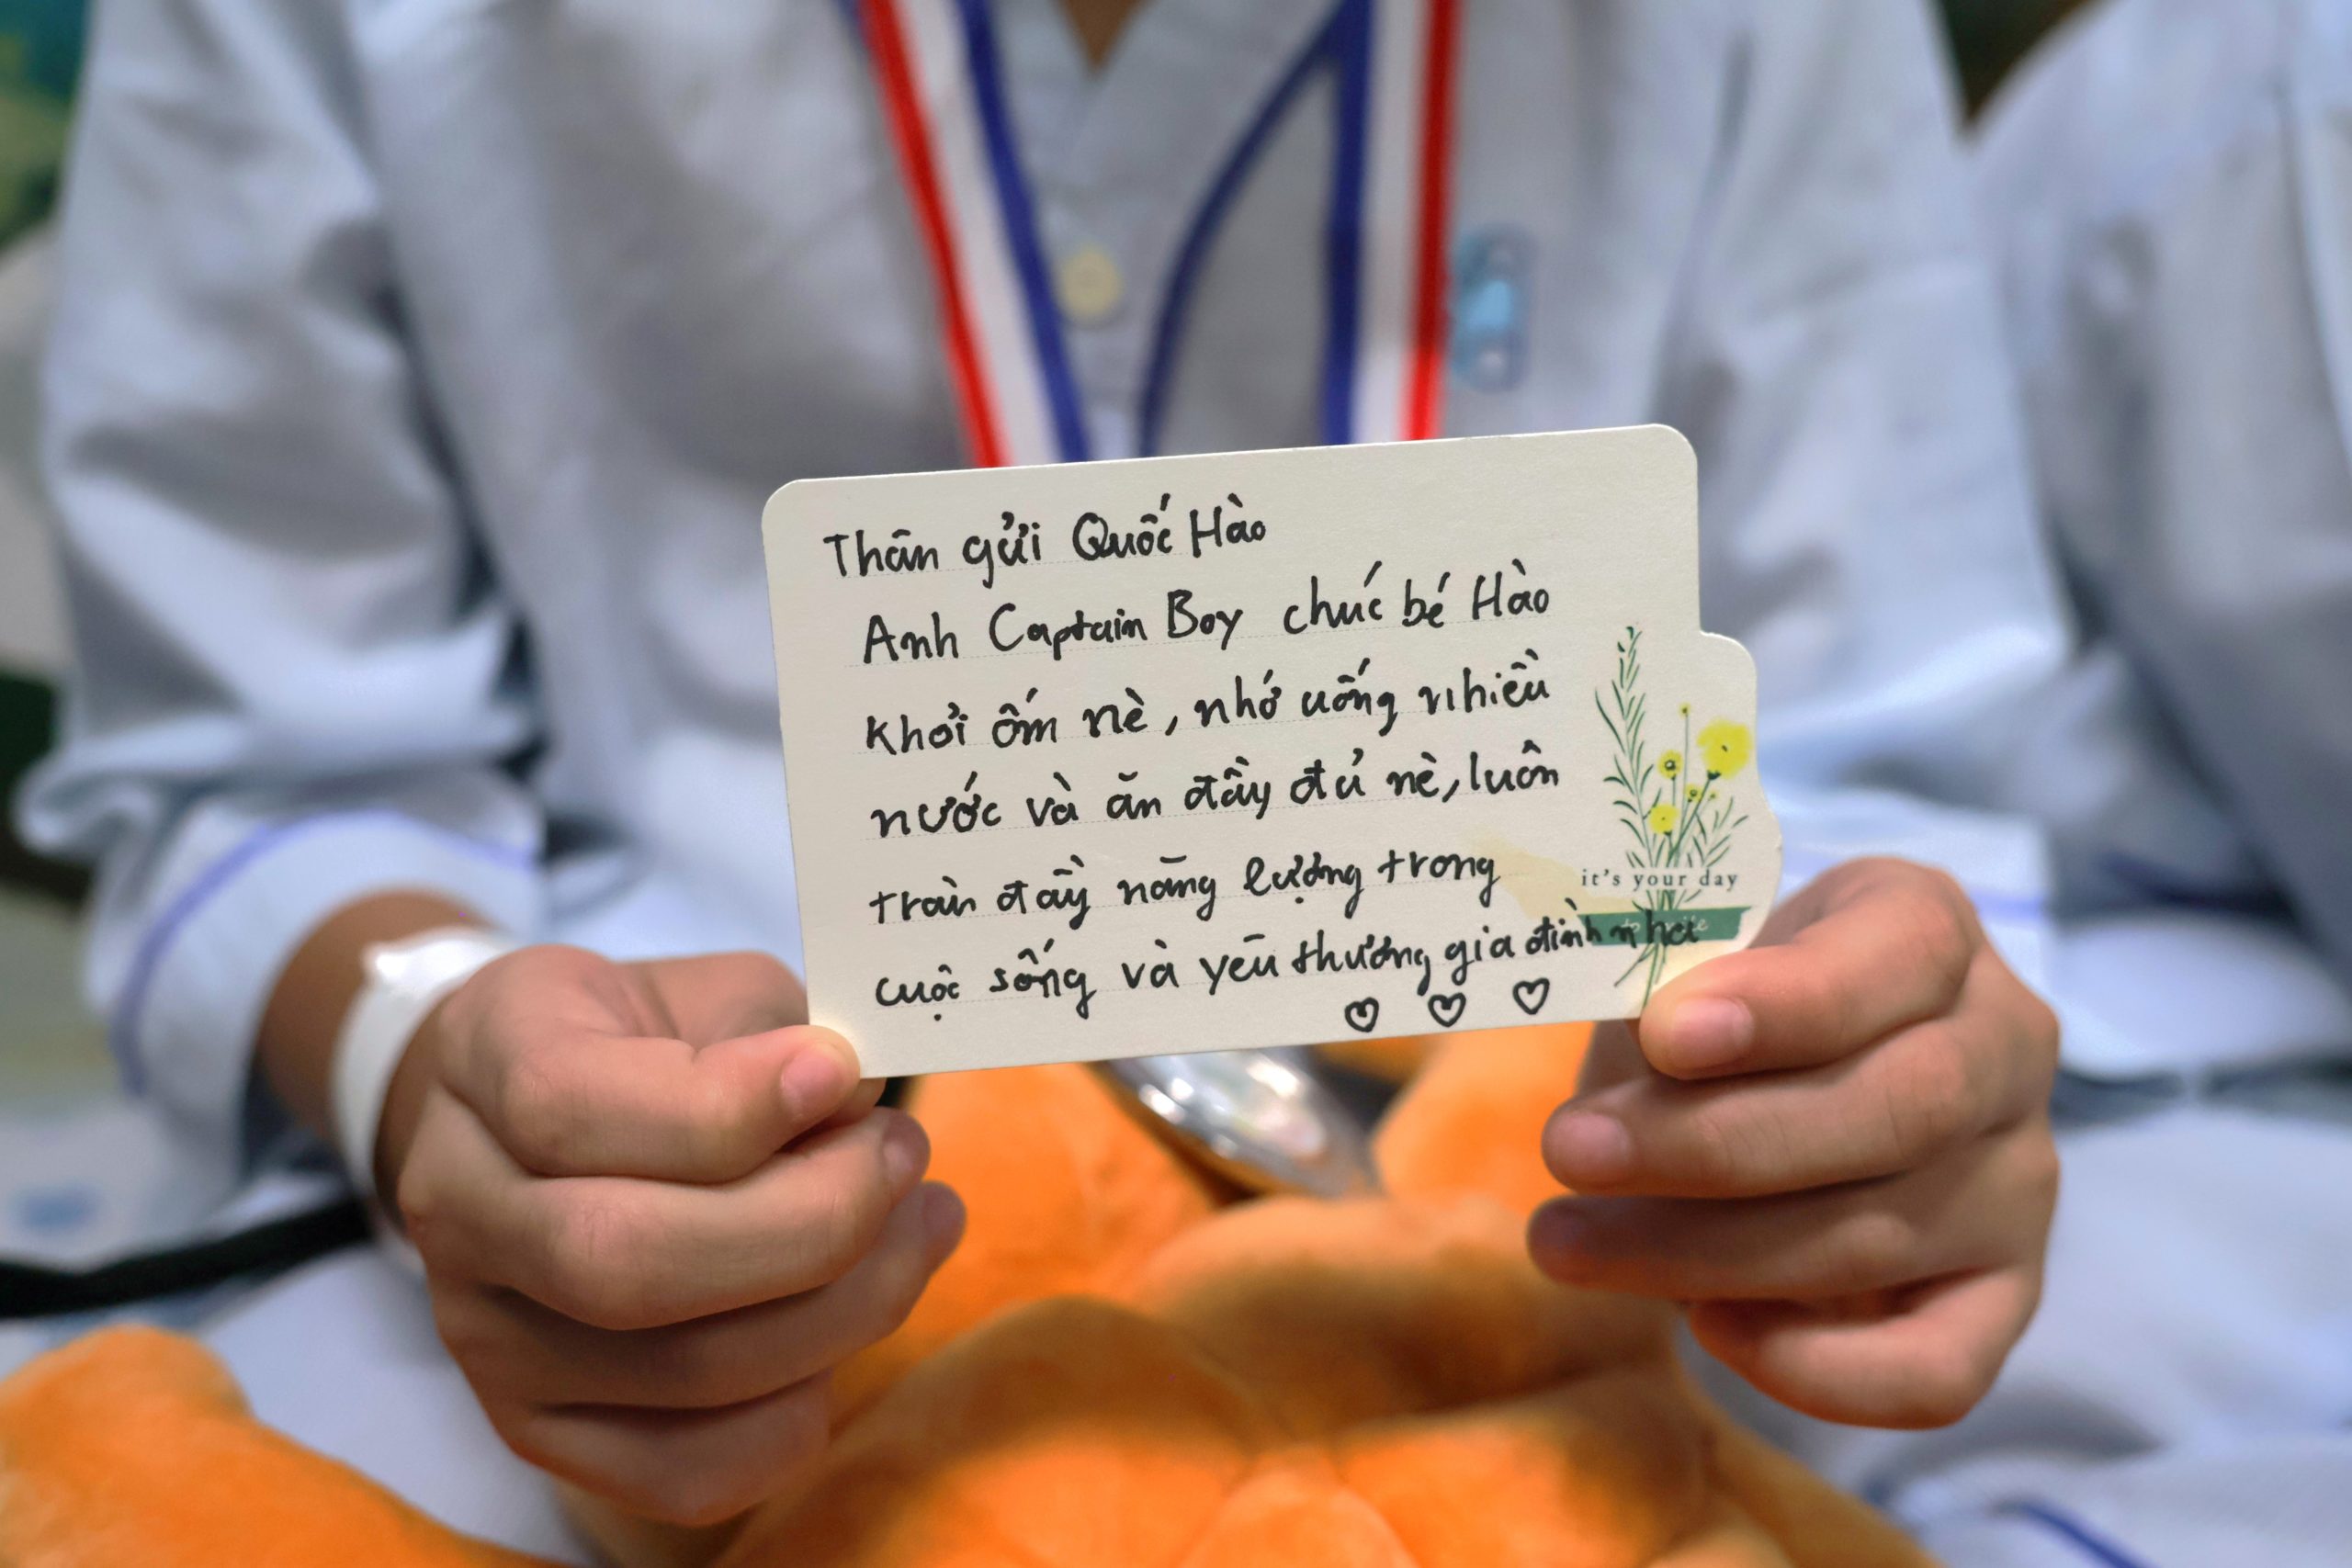 Thân gửi Quốc Hào
Anh Captain Boy chúc bé Hào
Khỏi ốm nè, nhớ uống nhiều
nước và ăn đầy đủ nè, luôn
tràn đầy năng lượng trong
cuộc sống và yêu thương gia đình nha
♡ ♡ ♡
it's your day